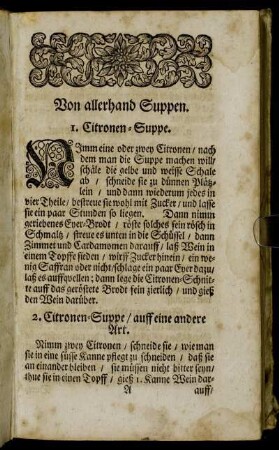 Von allerhand Suppen.
1. Citronen-Suppe.
Nimm eine oder zwey Citronen/ nach
dem man die Suppe machen will/
schäle die gelbe und weisse Schale
ab / schneide sie zu dünnen Plätz-
lein / und dann wiederum jedes in
vier Theile/ bestreue sie wohl mit Zucker/ und lasse
sie ein paar Stunden so liegen. Dann nimm
geriebenes Eyer-Brodt / röste solches fein rösch in
Schmaltz / streue es unten in die Schüssel / dann
Zimmet und Cardamomen darauff/ laß Wein in
einem Topffe sieden / wirff Zucker hinein / ein we-
nig Saffran oder nicht/ schlage ein paar Eyer dazu/
laß es auffquellen; dann lege die Citronen-Schnit-
te auff das geröstete Brodt fein zierlich / und gieß
den Wein darüber.
2. Citronen-Suppe / auff eine andere
Art.
Nimm zwey Citronen / schneide sie / wie man
sie in eine süsse Kanne pflegt zu schneiden / daß sie
an einander bleiben / sie müssen nicht bitter seyn/
thue sie in einen Topff / gieß 1. Kanne Wein dar-
A auff/